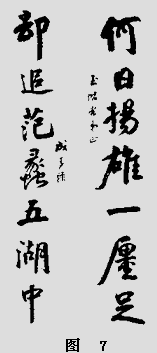 何日揚雄一廛足
却追范蠡五湖中
成多祿
图 7